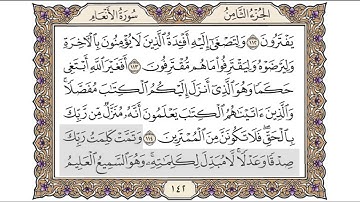 الجُزءُ الثَّامِنُ
سُورَةُ الأَنْعَام
يَفْتَرُونَ ١١٢ وَلِتَصْغَىٰٓ إِلَيْهِ أَفْـِٔدَةُ ٱلَّذِينَ لَا يُؤْمِنُونَ بِٱلْأٓخِرَةِ
وَلِيَرْضَوْهُ وَلِيَقْتَرِفُوا۟ مَا هُم مُّقْتَرِفُونَ ١١٣ أَفَغَيْرَ ٱللَّهِ أَبْتَغِى
حَكَمًا وَهُوَ ٱلَّذِىٓ أَنزَلَ إِلَيْكُمُ ٱلْكِتَٰبَ مُفَصَّلًا ۚ
وَٱلَّذِينَ ءَاتَيْنَٰهُمُ ٱلْكِتَٰبَ يَعْلَمُونَ أَنَّهُۥ مُنَزَّلٌ مِّن رَّبِّكَ
بِٱلْحَقِّ ۖ فَلَا تَكُونَنَّ مِنَ ٱلْمُمْتَرِينَ ١١٤ وَتَمَّتْ كَلِمَتُ رَبِّكَ
صِدْقًا وَعَدْلًا ۚ لَّا مُبَدِّلَ لِكَلِمَٰتِهِۦ ۚ وَهُوَ ٱلسَّمِيعُ ٱلْعَلِيمُ
١٤٢